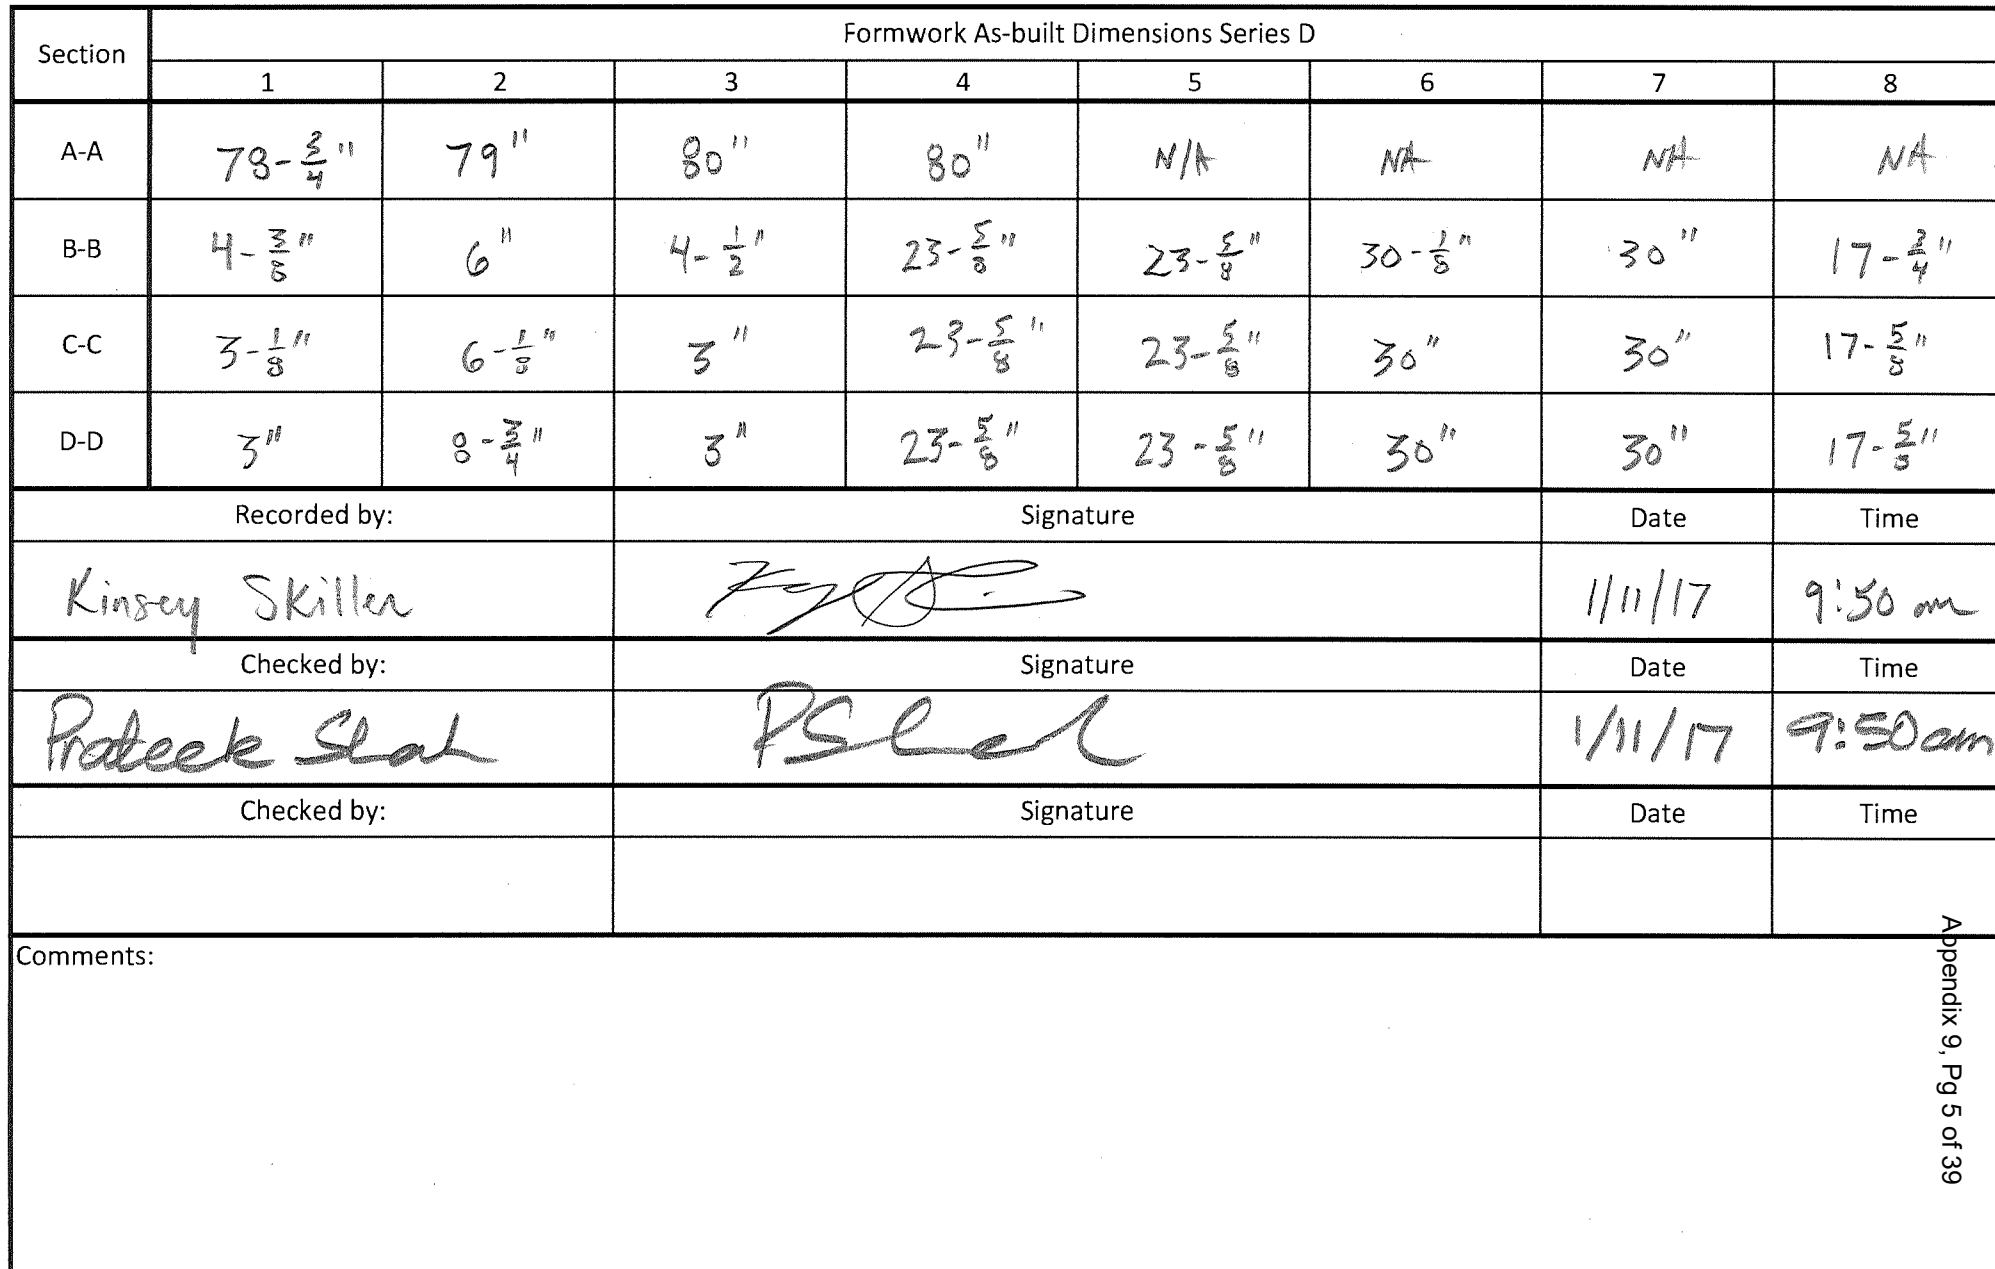 Formwork As-built Dimensions Series D
Section 1 2 3 4 5 6 7 8
A-A 78-3/4" 79" 80" 80" N/A NA NA NA
B-B 4-3/8" 6" 4-1/2" 23-5/8" 23-5/8" 30-1/8" 30" 17-3/4"
C-C 3-1/8" 6-1/8" 3" 23-5/8" 23-5/8" 30" 30" 17-5/8"
D-D 3" 8-3/4" 3" 23-5/8" 23-5/8" 30" 30" 17-5/8"
Recorded by: Signature Date Time
Kinsey Skiller 1/11/17 9:50 am
Checked by: Signature Date Time
Prateek Shah PShah 1/11/17 9:50am
Checked by: Signature Date Time
Comments:
Appendix 9, Pg 5 of 39